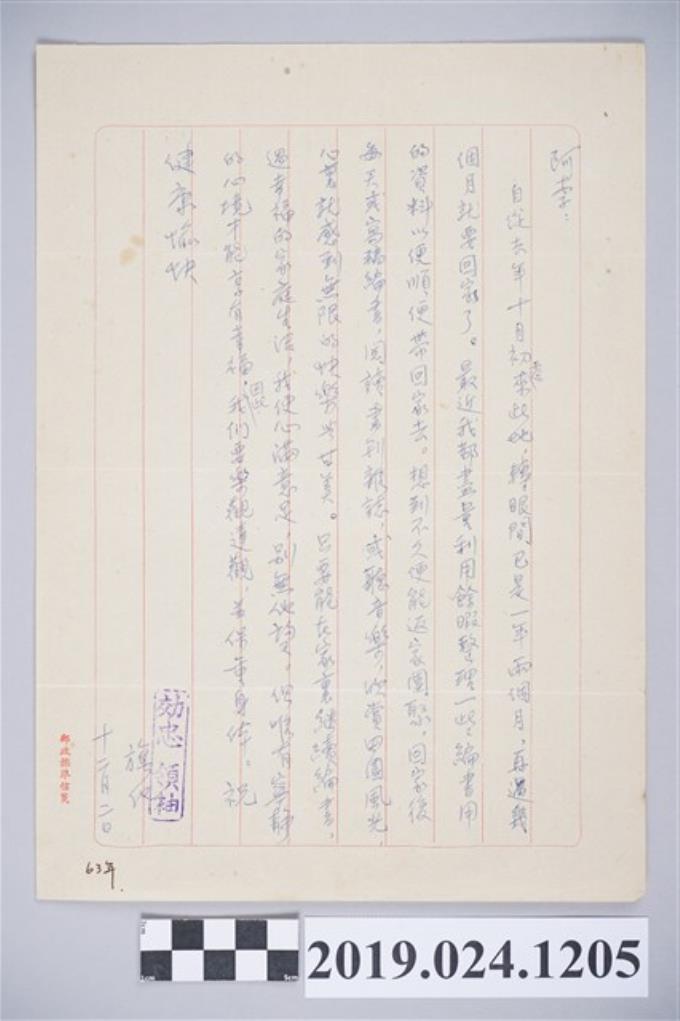 阿李：
自從去年十月初來此地，轉眼間已是一年兩個月，再過幾
個月就要回家了。最近我都盡量利用餘暇整理一些編書用
的資料以便順便帶回家去。想到不久便能返家團聚，回家後
每天或寫稿編書，閱讀書刊雜誌，或聽音樂，欣賞田園風光，
心裏就感到無限的快樂與甘美。只要能在家裏繼續編書，
過幸福的家庭生活，我便心滿意足，別無他望。但唯有寧靜
的心境才能享有幸福，因此我們要樂觀達觀，並保重身体。祝
健康愉快
効忠領袖
旗化
十二月二日
郵政標準信箋
63年.
1cm
5cm
2019.024.1205